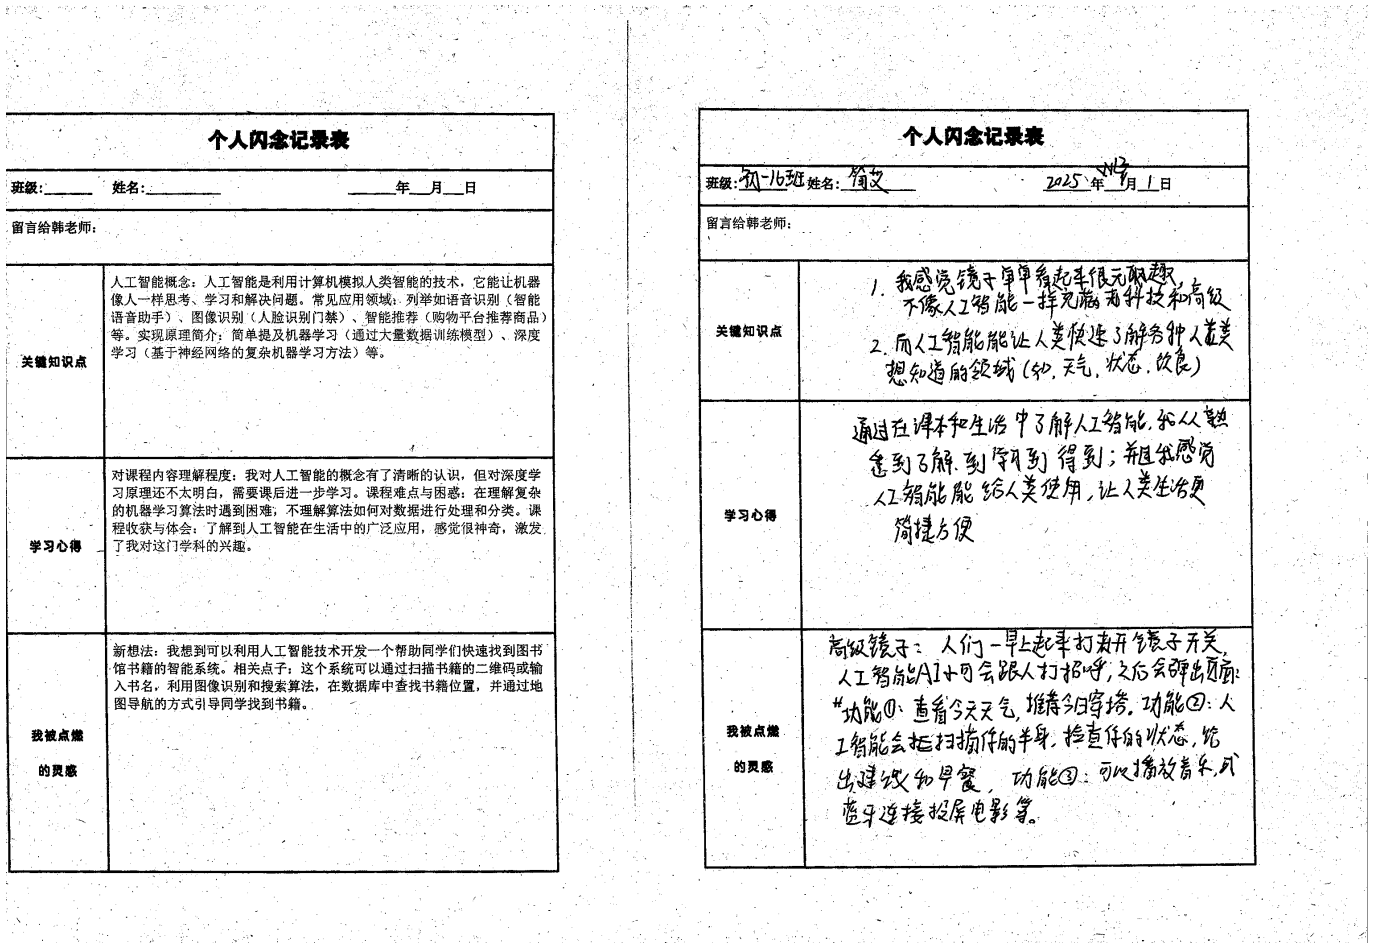 个人闪念记录表
班级:______ 姓名:_________ ______年__月__日
留言给韩老师:
关键知识点
人工智能概念：人工智能是利用计算机模拟人类智能的技术，它能让机器
像人一样思考、学习和解决问题。常见应用领域：列举如语音识别（智能
语音助手）、图像识别（人脸识别门禁）、智能推荐（购物平台推荐商品）
等。实现原理简介：简单提及机器学习（通过大量数据训练模型）、深度
学习（基于神经网络的复杂机器学习方法）等。
学习心得
对课程内容理解程度：我对人工智能的概念有了清晰的认识，但对深度学
习原理还不太明白，需要课后进一步学习。课程难点与困惑：在理解复杂
的机器学习算法时遇到困难，不理解算法如何对数据进行处理和分类。课
程收获与体会：了解到人工智能在生活中的广泛应用，感觉很神奇，激发
了我对这门学科的兴趣。
我被点燃
的灵感
新想法：我想到可以利用人工智能技术开发一个帮助同学们快速找到图书
馆书籍的智能系统。相关点子：这个系统可以通过扫描书籍的二维码或输
入书名，利用图像识别和搜索算法，在数据库中查找书籍位置，并通过地
图导航的方式引导同学找到书籍。
个人闪念记录表
班级:初一16班 姓名: 2025年 月1日
留言给韩老师:
关键知识点
1. 我感觉镜子单单看起来很无趣
不像人工智能一样充满着科技和高级
2. 而人工智能能让人类快速了解各种人类
想知道的领域(如,天气,状态,饮食)
学习心得
通过在课本和生活中了解人工智能,我从熟
悉到了解,到学习到得到;并且我感觉
人工智能能给人类使用,让人类生活更
简捷方便
我被点燃
的灵感
高级镜子: 人们一早上起来打开镜子开关,
人工智能AI 会跟人打招呼,之后会弹出页面:
"功能①:查看今天天气,推荐今日穿搭。功能②:人
工智能会扫描你的半身,检查你的状态,给
出建议和早餐, 功能③:可以播放音乐,或
蓝牙连接投屏电影等。